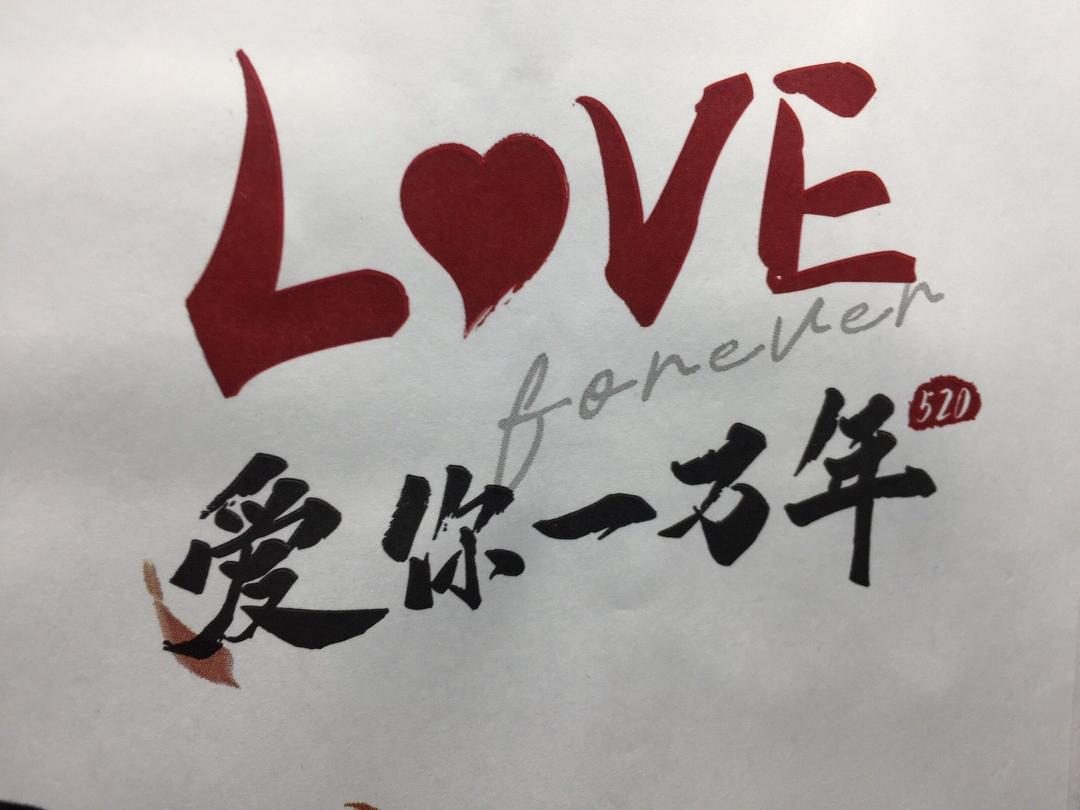 LOVE
forever
爱你一万年
520